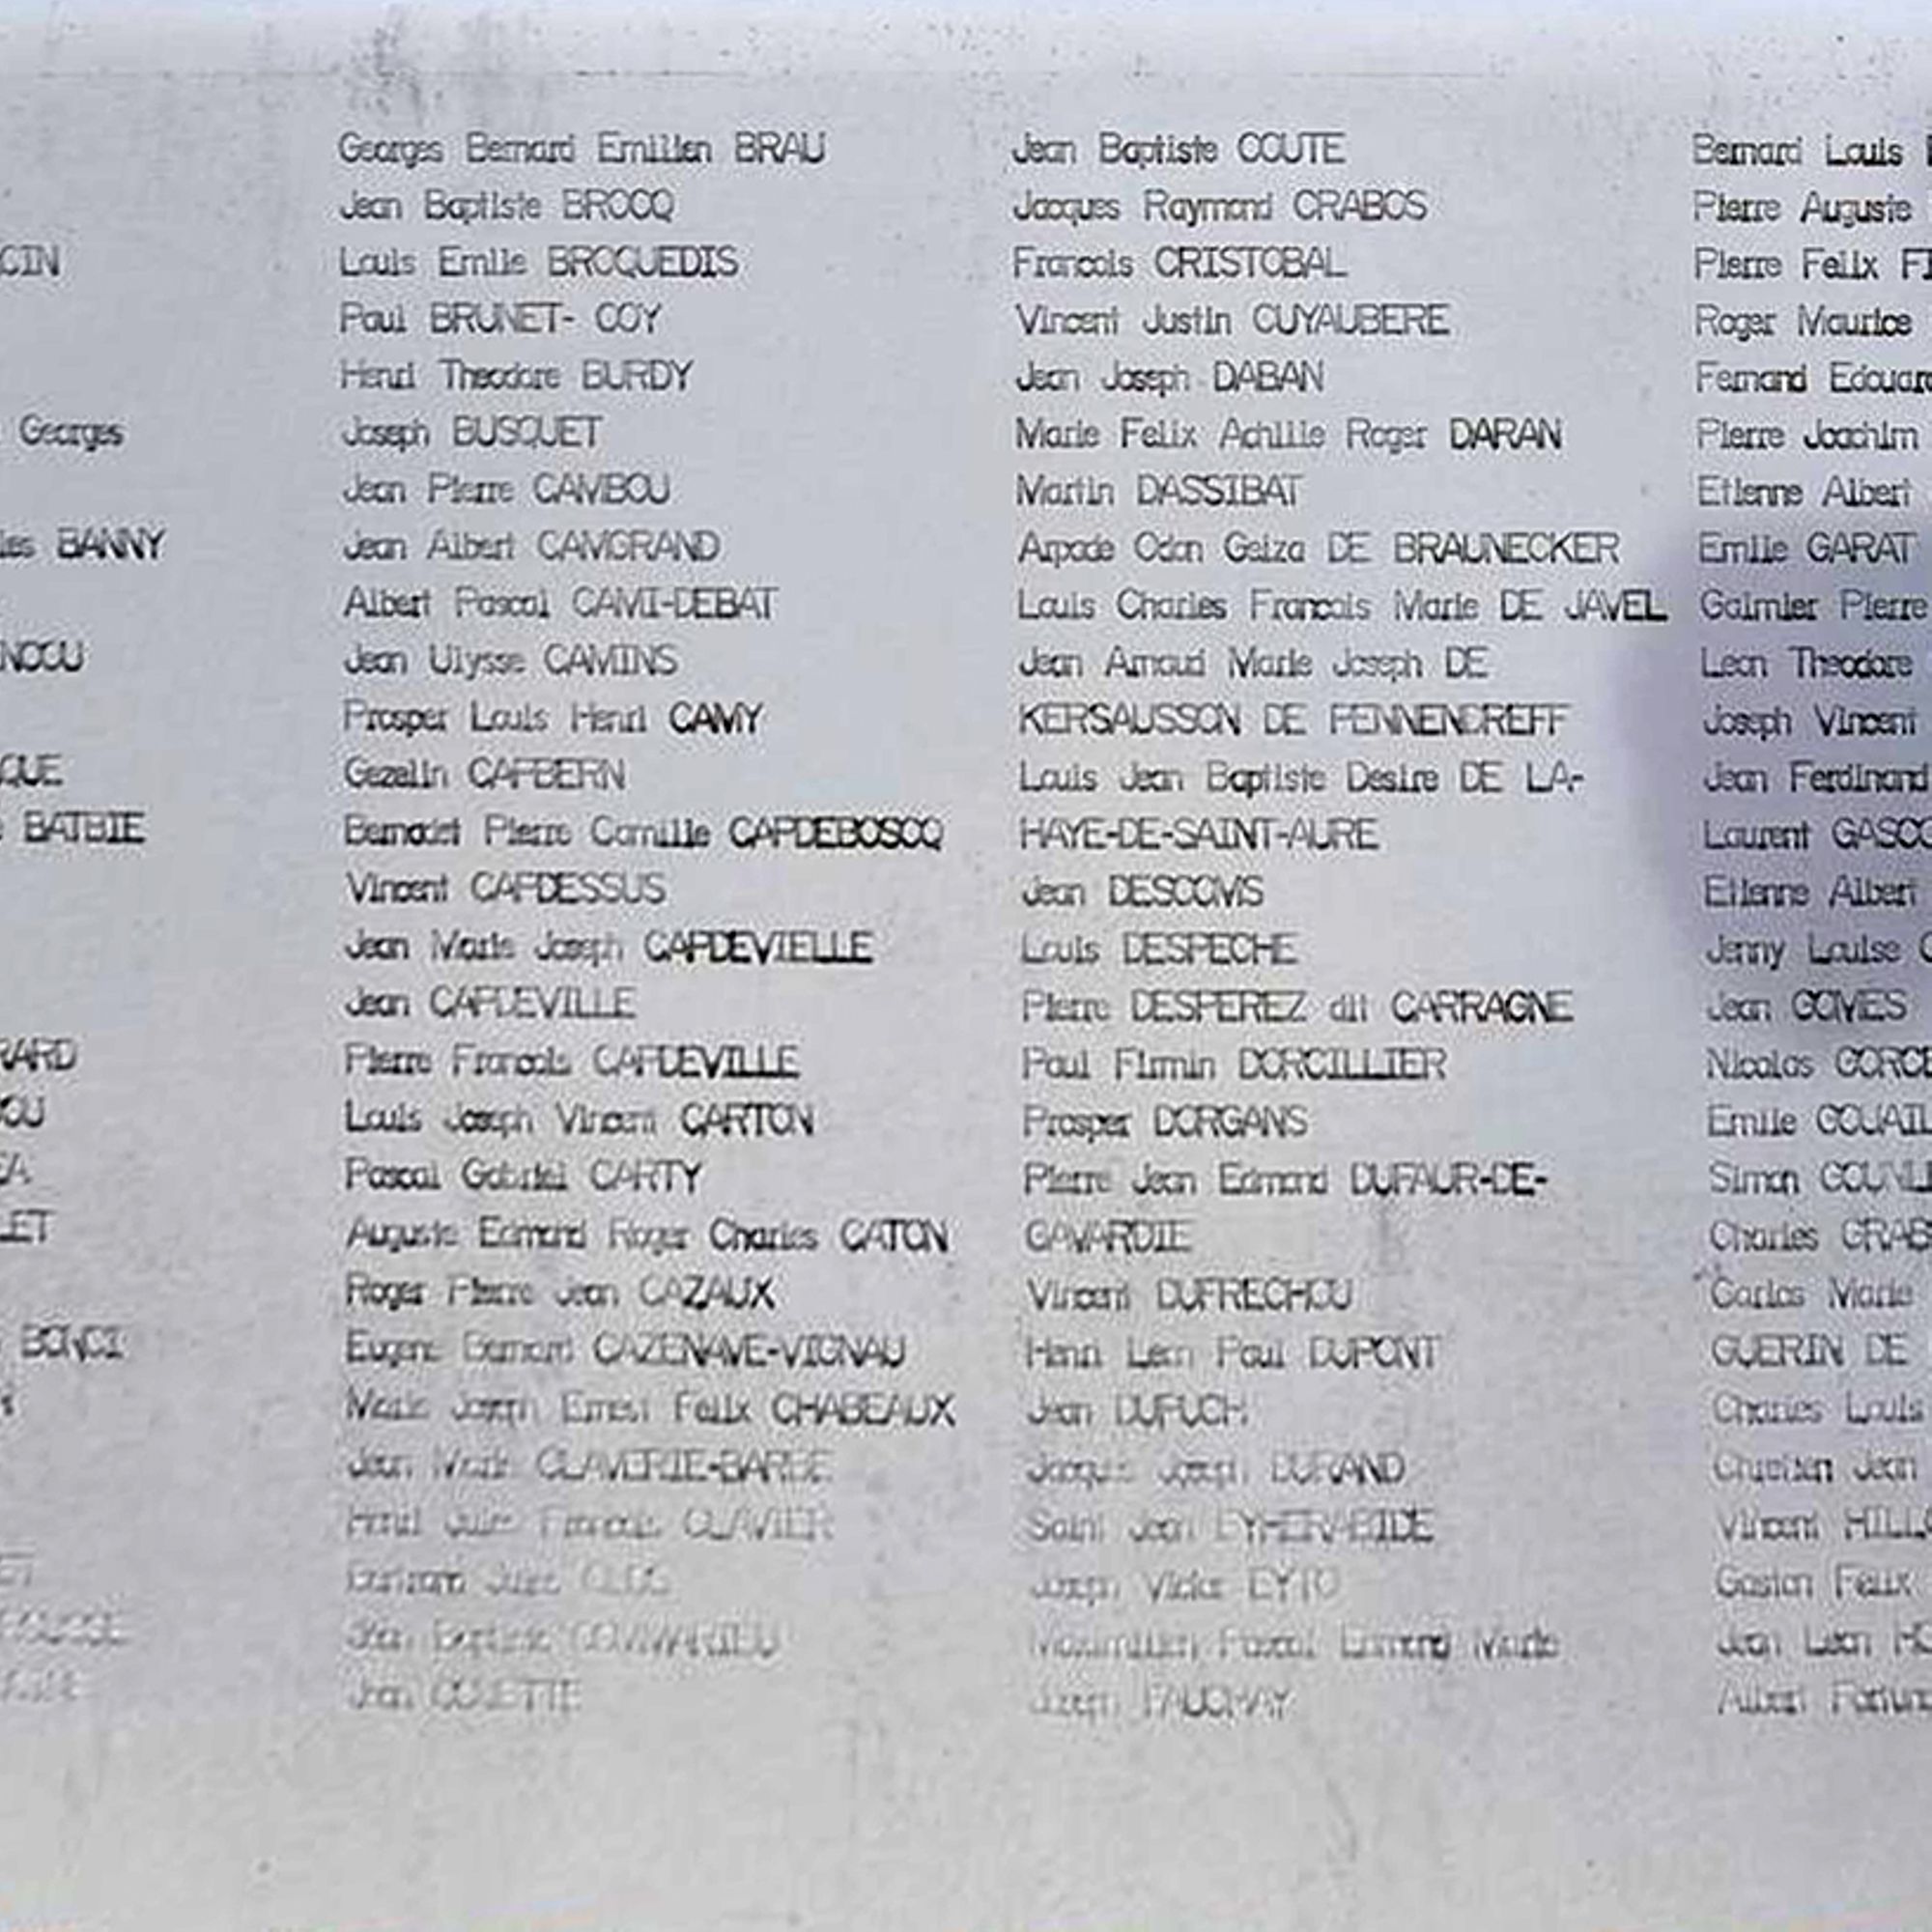 CIN
Georges
BANNY
NCOU
QUE
BATBIE
RARD
OU
LET
Georges Bernard Emilien BRAU
Jean Baptiste BROCQ
Louis Emile BROQUEDIS
Paul BRUNET- COY
Henri Theodore BURDY
Joseph BUSQUET
Jean Pierre CAMBOU
Jean Albert CAMGRAND
Albert Pascal CAMI-DEBAT
Jean Ulysse CAMINS
Prosper Louis Henri CAMY
Gezelin CAPBERN
Bernadet Pierre Camille CAPDEBOSCQ
Vincent CAPDESSUS
Jean Marie Joseph CAPDEVIELLE
Jean CAPDEVILLE
Pierre Francois CAPDEVILLE
Louis Joseph Vincent CARTON
Pascal Gabriel CARTY
Auguste Edmond Roger Charles CATON
Roger Pierre Jean CAZAUX
Eugene Bernard CAZENAVE-VIGNAU
Marie Joseph Ernest Felix CHABEAUX
Jean Marie CLAVERIE-BARBE
Henri Jules Francois CLAVIER
Bertrand Jules
Jean Baptiste COMMARIEU
Jean
Jean Baptiste COUTE
Jacques Raymond CRABOS
Francois CRISTOBAL
Vincent Justin CUYAUBERE
Jean Joseph DABAN
Marie Felix Achille Roger DARAN
Martin DASSIBAT
Arpade Odon Geiza DE BRAUNECKER
Louis Charles Francois Marie DE JAVEL
Jean Arnaud Marie Joseph DE
KERSAUSSON DE PENNENDREFF
Louis Jean Baptiste Desire DE LA-
HAYE-DE-SAINT-AURE
Jean DESCOMS
Louis DESPECHE
Pierre DESPEREZ dit CARRAGNE
Paul Firmin DORCILLIER
Prosper DORGANS
Pierre Jean Edmond DUFAUR-DE-
GAVARDIE
Vincent DUFRECHOU
Henri Leon Paul DUPONT
Jean DUPUCH
Jacques Joseph DURAND
Saint Jean EYHERABIDE
Joseph Victor EYTO
Maximilien Pascal Edmond Marie
Joseph FAUCHAY
Bernard Louis
Pierre Auguste
Pierre Felix
Roger Maurice
Fernand Edouard
Pierre Joachim
Etienne Albert
Emile GARAT
Galmier Pierre
Leon Theodore
Joseph Vincent
Jean Ferdinand
Laurent GASCO
Etienne Albert
Jenny Louise
Jean GOMES
Nicolas
Emile GOUAIL
Simon
Charles GRAB
Carlos Marie
GUERIN DE
Charles Louis
Chretien Jean
Vincent HILLO
Gaston Felix
Jean Leon
Albert